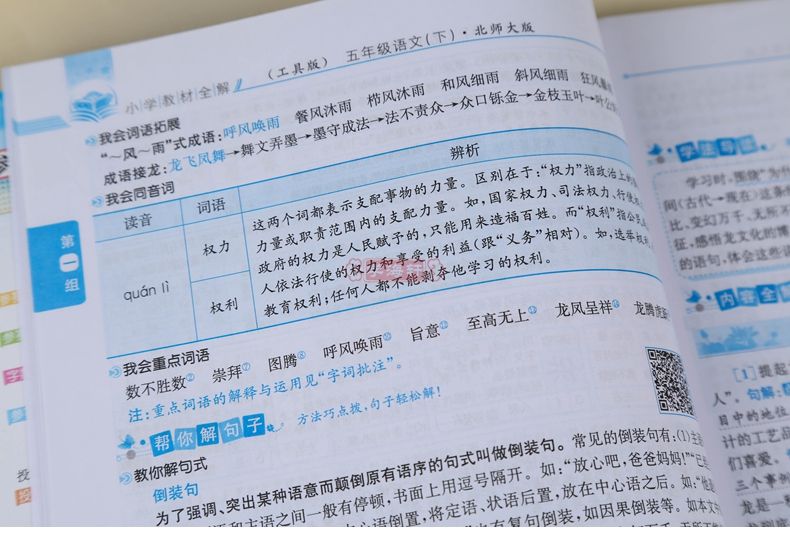 小学教材全解
（工具版） 五年级语文（下）·北师大版
我会词语拓展
“～风～雨”式成语：呼风唤雨 餐风沐雨 栉风沐雨 和风细雨 斜风细雨 狂风暴雨
成语接龙：龙飞凤舞→舞文弄墨→墨守成法→法不责众→众口铄金→金枝玉叶→叶公
我会同音词
读音 词语 辨析
quán lì
权力
权利
这两个词都表示支配事物的力量。区别在于：“权力”指政治上的
力量或职责范围内的支配力量。如，国家权力、司法权力、行使
政府的权力是人民赋予的，只能用来造福百姓。而“权利”指公民
人依法行使的权力和享受的利益（跟“义务”相对）。如，选举权利
教育权利；任何人都不能剥夺他学习的权利。
第一组
我会重点词语
数不胜数② 崇拜⑦ 图腾⑧ 呼风唤雨⑩ 旨意⑪ 至高无上⑬ 龙凤呈祥⑭ 龙腾虎
注：重点词语的解释与运用见“字词批注”。
帮你解句子 方法巧点拨，句子轻松解！
教你解句式
倒装句
为了强调、突出某种语意而颠倒原有语序的句式叫做倒装句。常见的倒装句有：（1）主
和主语之间一般有停顿，书面上用逗号隔开。如：“放心吧，爸爸妈妈！”
中心语倒置，将定语、状语后置，放在中心语之后。如：“他
也有复句倒装，如因果倒装等。如本文中
学法导练
学习时，围绕“为什
间（古代→现代）这条
比，变幻万千、无所不
征，感悟龙文化的博
的语句，体会这些词
内容全解
[1] 提起
人”。句解：
目中的地位
计的工艺品
们喜爱。
三个事例
龙是一种